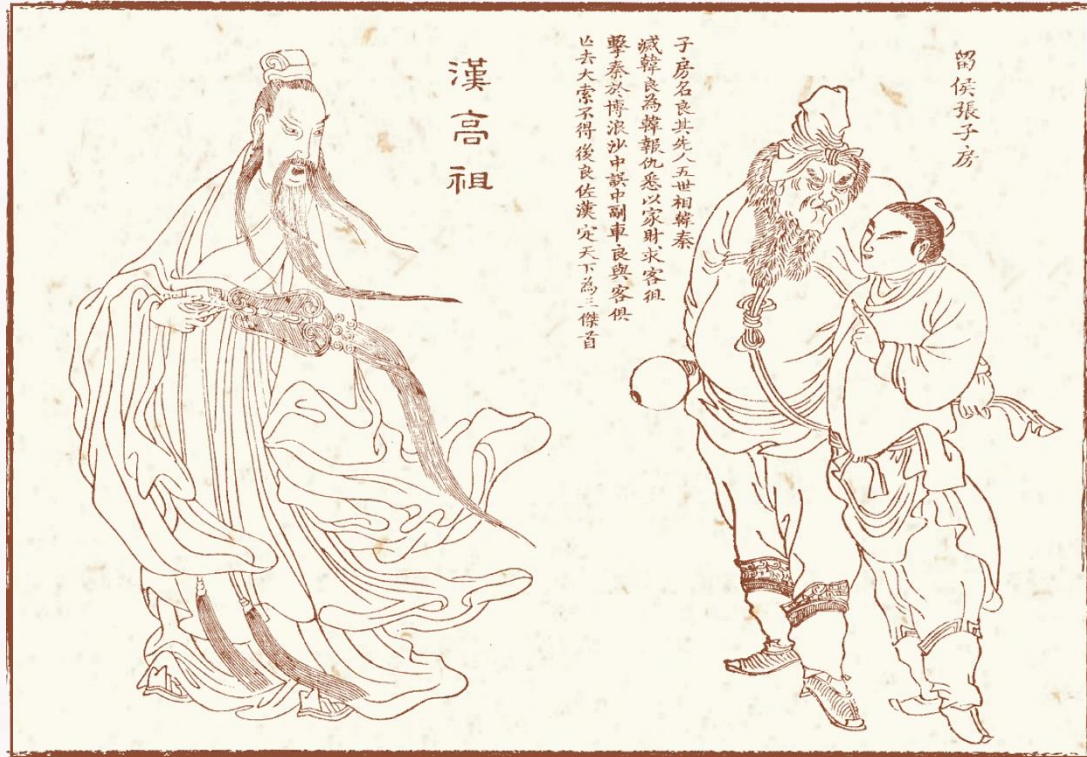 留侯張子房
子房名良其先人五世相韓秦
滅韓良為韓報仇悉以家財求客徂
擊秦於博浪沙中誤中副車良與客俱
亾去大索不得後良佐漢定天下為三傑首
漢高祖